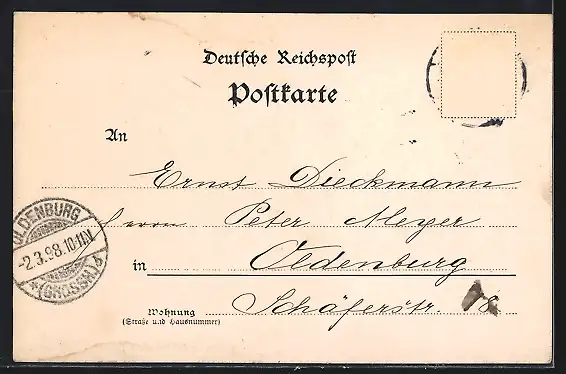 Deutsche Reichspost
Postkarte
An
Ernst Dieckmann
Herrn Peter Meyer
in Oldenburg
Wohnung Schäferstr. 18
(Straße und Hausnummer)
OLDENBURG
-2.3.98.10-11N.
*(GROSSH)*